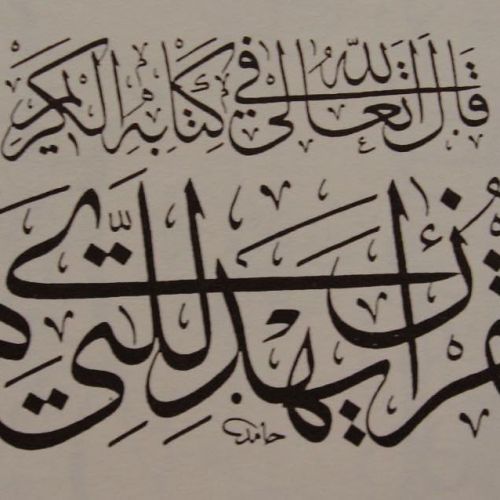 قال الله تعالى في كتابه الكريم
القرآن يهدي للتي
حامد